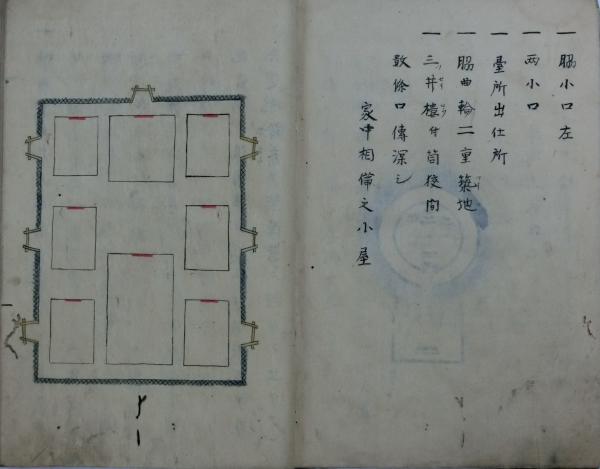 一 脇小口左
一 両小口
一 臺所出仕所
一 脇曲輪二重築地
一 三井樓付箇後間
数條口傳深シ
家中相備之小屋